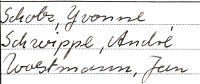 Scholz, Yvonne
Schwippe, André
Woestmann, Jan